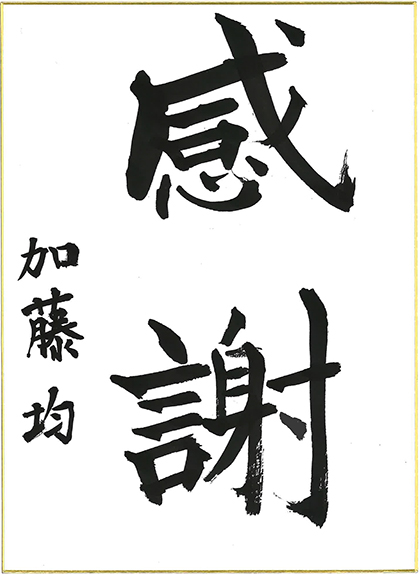 感謝
加藤均